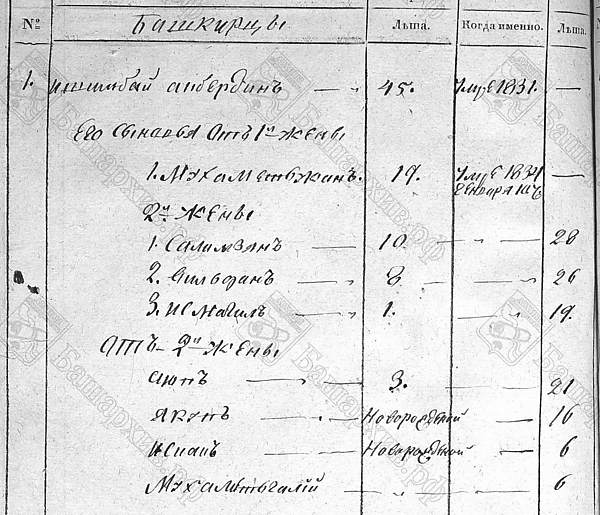 № Башкирцы Лѣта. Когда именно. Лѣта.
1. Ишимбай акбердинъ — „ 45. Умре 1831. —
Его Сыновья Отъ 1й Жены
1. Мухаметьжанъ. 19. Умре 1834 —
Генваря
2й Жены
1. Салимзянъ — 10 — „ — 28
2. — 8 — „ — 26
3. Исмагилъ — 1. — „ — 19.
Отъ 2й Жены
аюпъ — „ — 3. — „ — 21
Якупъ — „ — Новорожденой — 16
— „ — Новорожденой — 6
Мухаметьгалій — „ — „ — 6
Башархив.рф